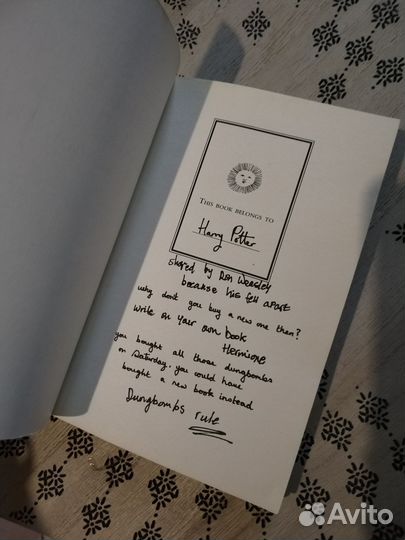 THIS BOOK BELONGS TO
Harry Potter
shared by Ron Weasley
because his fell apart
why don't you buy a new one then?
write on your own book
Hermione
you bought all those dungbombs
on Saturday. you could have
bought a new book instead
Dungbombs rule
Avito